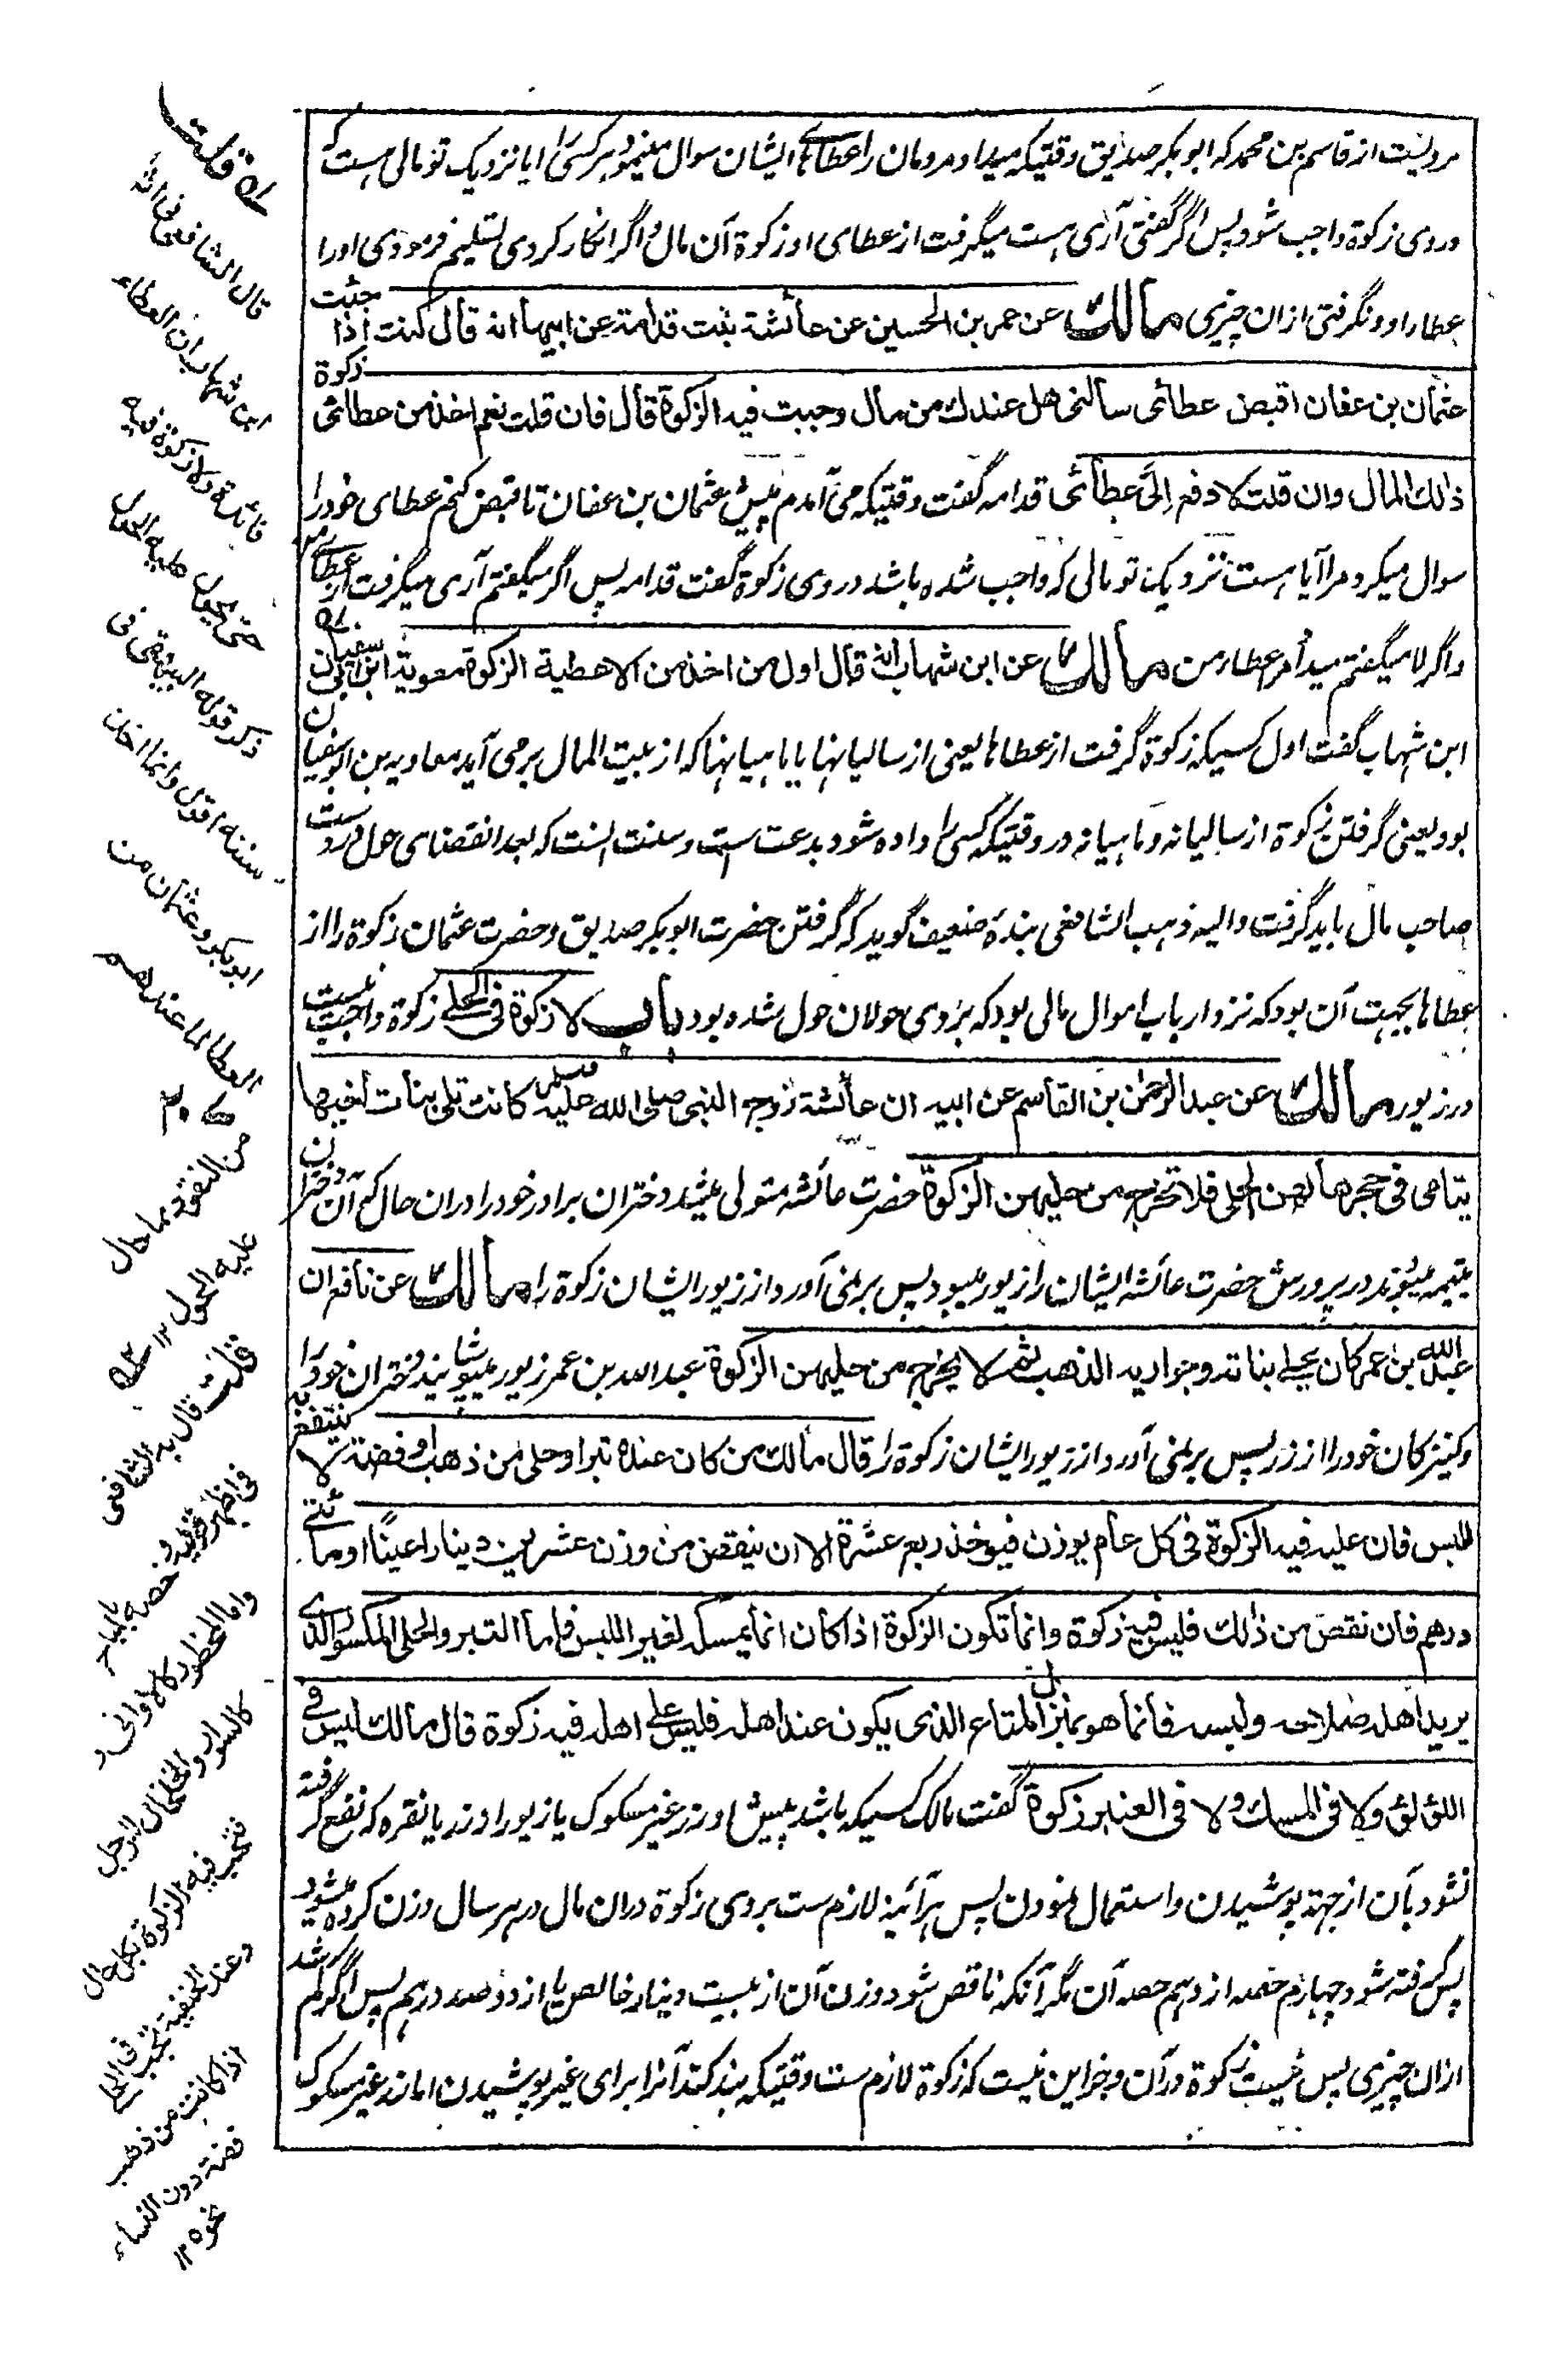 مرویست از قاسم بن محمد که ابو بکر صدیق وقتیکه میداد مردمان را عطاهای ایشان سوال مینمود هر کسی را ایا نزدیک تو مالی هست که
در وی زکوة واجب شود پس اگر گفتی آری هست میگرفت از عطای او زکوة آن مال و اگر انکار کردی تسلیم فرمودی اورا
عطار اوو نگرفتی ازان چیزی مالك عن عمر بن الحسین عن عائشة بنت قدامة عن ابیها انه قال کنت اذا جئت
عثمان بن عفان اقبض عطائی سالنی هل عندك من مال وجبت فیه الزکوة قال فان قلت نعم اخذ من عطائی زکوة
ذلك المال وان قلت لا دفع الیَّ عطائی قدامه گفت وقتیکه می آمدم پیش عثمان بن عفان تا قبض کنم عطای خود را
سوال میکرد مرا آیا هست نزدیک تو مالی که واجب شده باشد در وی زکوة گفت قدامه پس اگر میگفتم آری میگرفت از عطای من
و اگر لا میگفتم میداد مر عطار من مالك عن ابن شهاب انه قال اول من اخذ من الاعطیة الزکوة معویة ابن ابی سفیان
ابن شهاب گفت اول کسیکه زکوة گرفت از عطاها یعنی از سالیانها یا ماهیانها که از بیت المال بر می آید معاویه بن ابو سفیان
بود یعنی گرفتن زکوة از سالیانه و ماهیانه در وقتیکه کسی را داده شود بدعت است و سنت انست که بعد انقضای حول در دست
صاحب مال باید گرفت والیه ذهب الشافعی بندهٔ ضعیف گوید که گرفتن حضرت ابو بکر صدیق و حضرت عثمان زکوة را از
عطاها بجهت آن بود که نزد ارباب اموال مالی بود که بر وی حولان حول شده بود باب لا زکوة فی الحلی زکوة واجب نیست
در زیور مالك عن عبد الرحمن بن القاسم عن ابیه ان عائشة زوج النبی صلی الله علیه وسلم کانت تلی بنات اخیها
یتامی فی حجرها لهن الحلی فلا تخرج من حلیهن الزکوة حضرت عائشه متولی میشد دختران برادر خود را دران حال که آن دختران
یتیمه میبودند در پرورش حضرت عائشه ایشان را زیور میبود پس بر نمی آورد از زیور ایشان زکوة را مالك عن نافع ان
عبد الله بن عمر کان یحلی بناته وجواریه الذهب ثم لا یخرج من حلیهن الزکوة عبد الله بن عمر زیور میپوشانید دختران خود را
و کنیزکان خود را از زر پس بر نمی آورد از زیور ایشان زکوة را قال مالك من کان عنده تبر او حلی من ذهب او فضة لا ینتفع به
للبس فان علیه فیه الزکوة فی کل عام یوزن فیوخذ ربع عشرة الا ان ینقص من وزن عشرین دینارا عینًا او مائتی
درهم فان نقص من ذلك فلیس فیه زکوة وانما تکون الزکوة اذا کان انما یمسکه لغیر اللبس فاما التبر والحلی المکسور الذی
یرید اهله صلاحه ولبسه فانما هو بمنزل المتاع الذی یکون عند اهله فلیس علی اهله فیه زکوة قال مالك لیس فی
اللؤلؤ ولا فی المسك ولا فی العنبر زکوة گفت مالک کسیکه باشد پیش او زر غیر مسکوک یا زیور از زر یا نقره که نفع گرفته
نشود بآن از جهة پوشیدن و استعمال نمودن پس هرآئینه لازم ست بر وی زکوة دران مال در هر سال وزن کرده میشود
پس گرفته شود چهارم حصه از دهم حصه آن مگر آنکه ناقص شود وزن آن از بیست دینار خالص یا از دو صد درهم پس اگر کم باشد
ازان چیزی پس نیست زکوة در آن و جز این نیست که زکوة لازم ست وقتیکه بند کند آنرا برای غیر پوشیدن اما زر غیر مسکوک
له قلت
قال الشافعی فی اثر
ابن شهاب ان العطاء
فائدة ولا زکوة فیه
حتی یحول علیه الحول
ذکر قوله البیهقی فی
سننه اقول وانما اخذ
ابو بکر وعثمان من
العطا لما عندهم
من النقود بما حال
علیه الحول ١٢
قلت قال به الشافعی
فی اظهر قولیه و خصه بالمباح
واما المحظور کالاوانی و
کالسوار والخلخال للرجل
فتجب فیه الزکوة بکل حال
وعند الحنفیة تجب فی الحلی
اذا کانت من ذهب
فضة دون النساء
نحوه ١٢